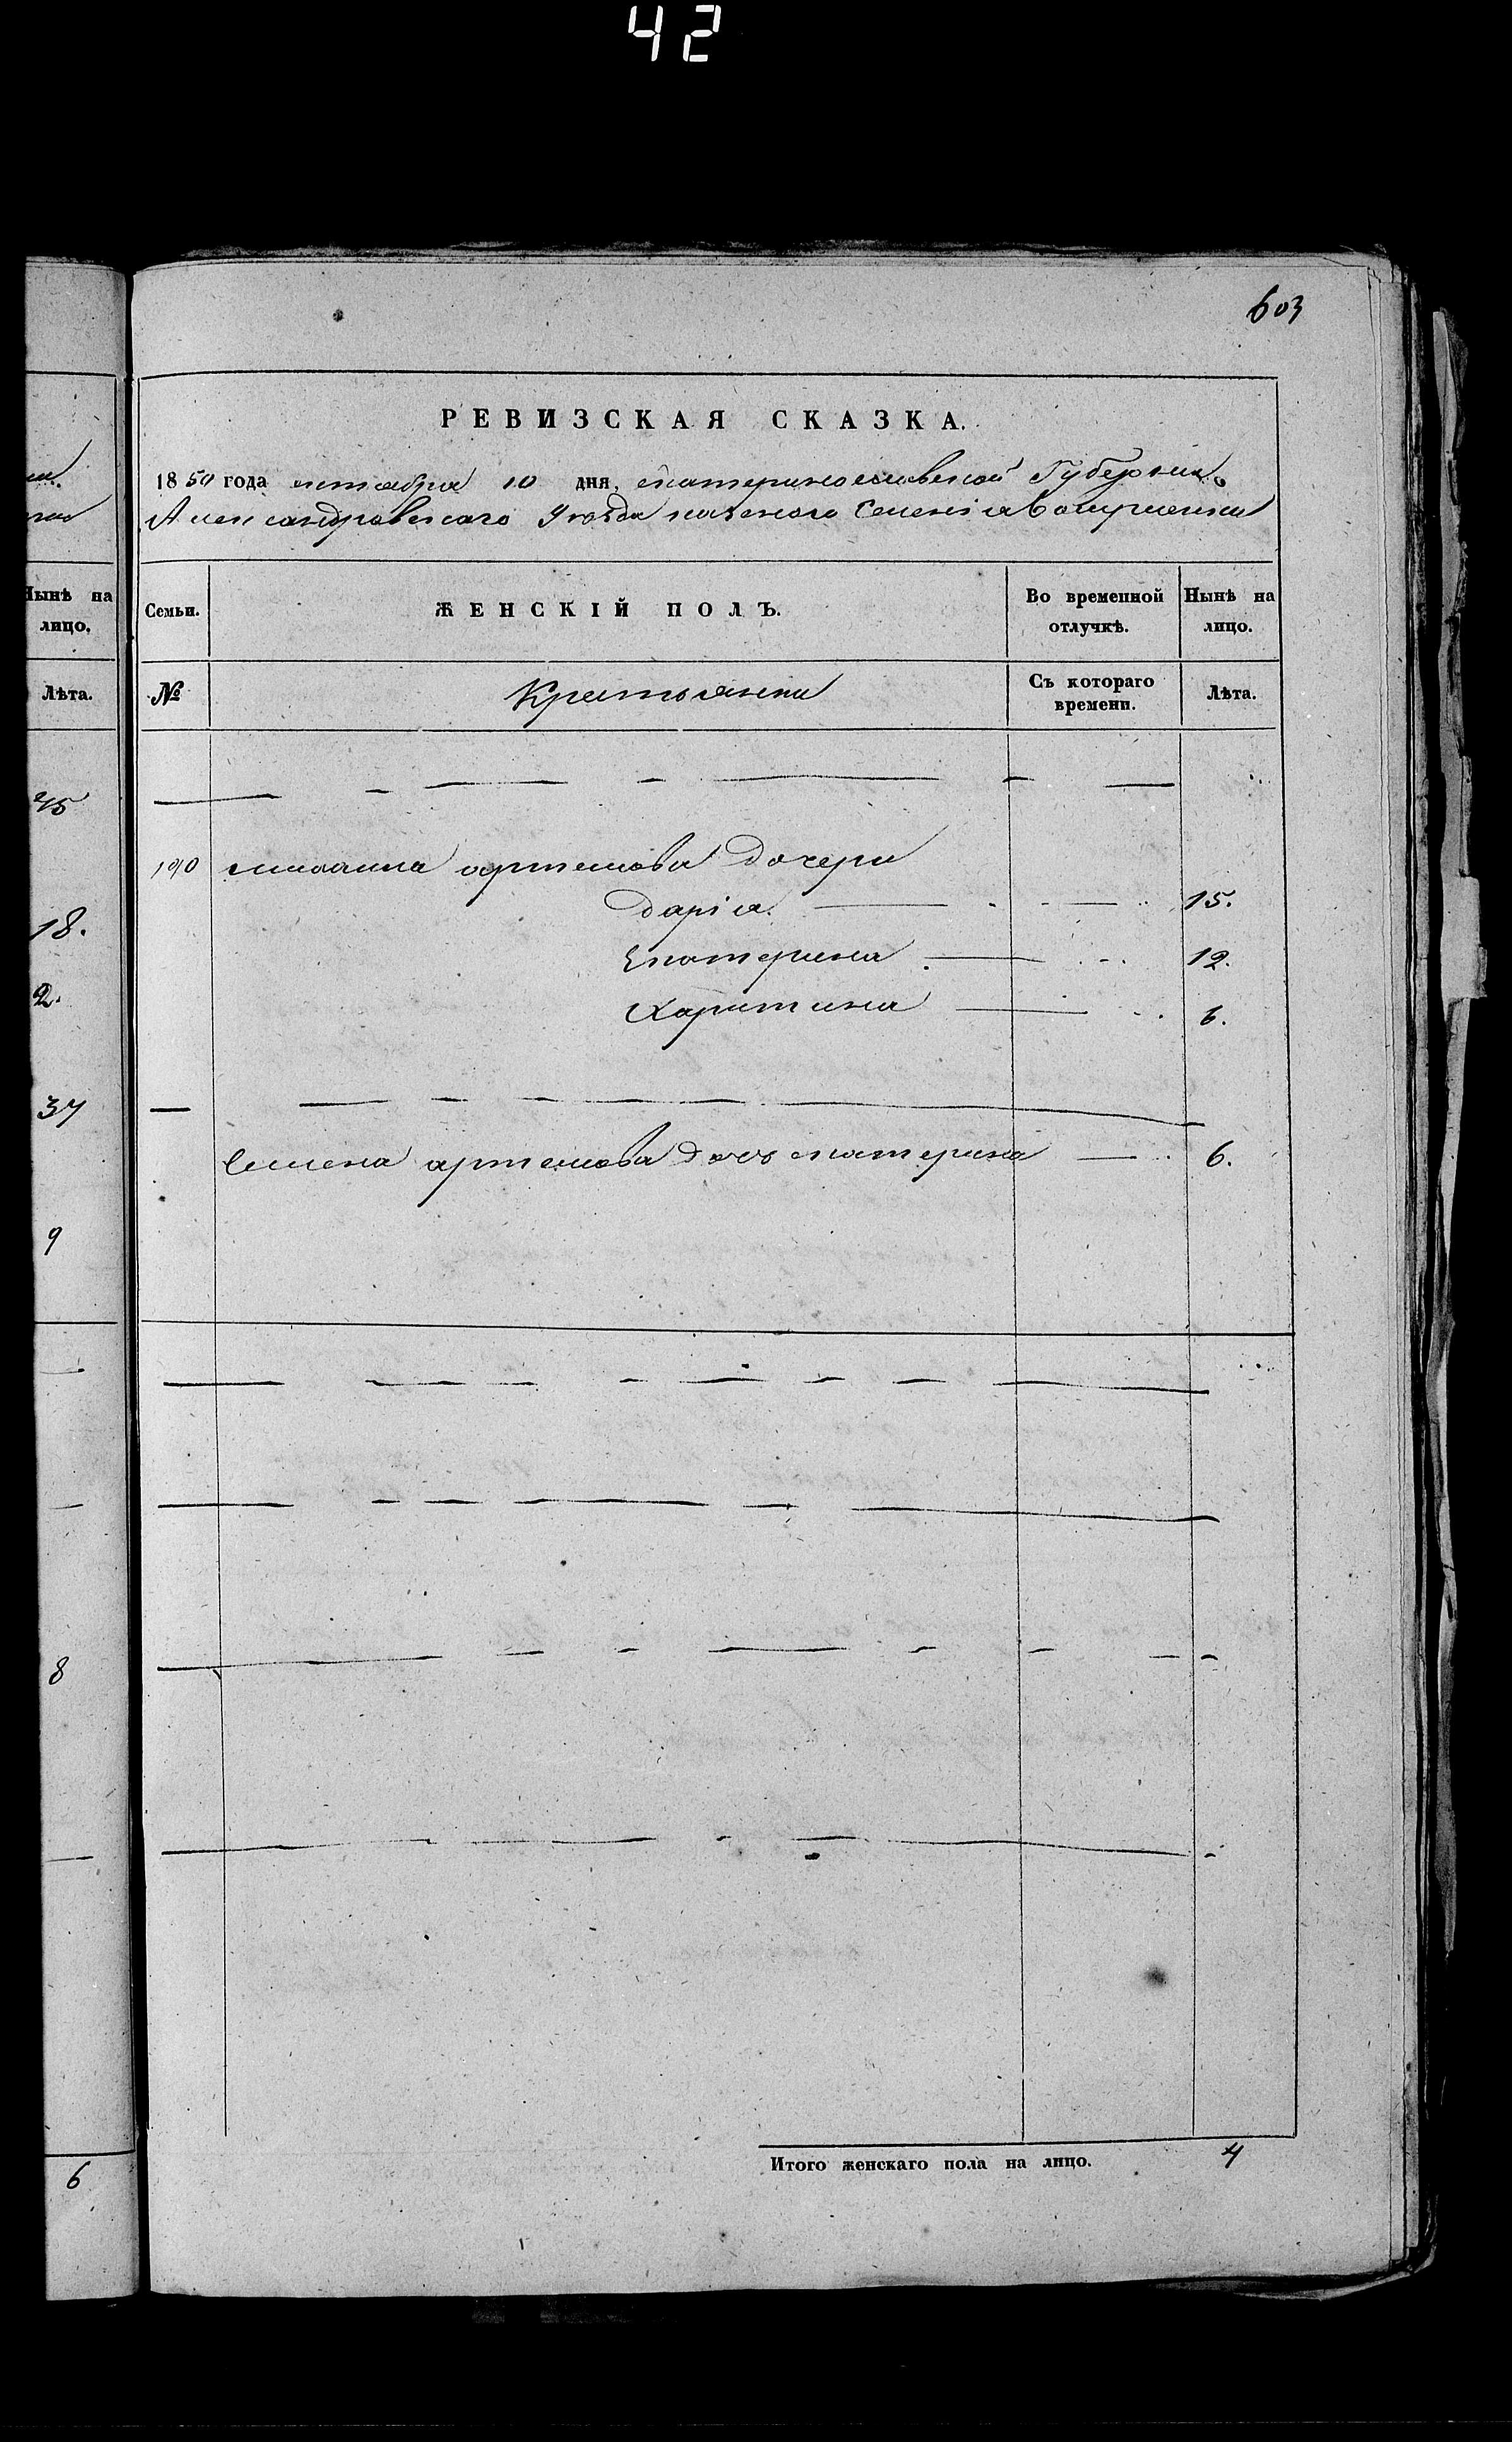 42
603
РЕВИЗСКАЯ СКАЗКА.
1850 года октября 10 дня, екатеринославской Губернии
Александровскаго Уѣзда казеного Селенія
Нынѣ на лицо.
Семьи.
ЖЕНСКІЙ ПОЛЪ.
Во временной отлучкѣ.
Нынѣ на лицо.
Лѣта.
№
Крестьянки
Съ котораго времени.
Лѣта.
190 артемова дочери
Дарія 15.
Екатерина 12.
Харитина 6.
Семена артемова дочь екатерина 6.
45
18.
2.
37
9
8
6
Итого женскаго пола на лицо. 4